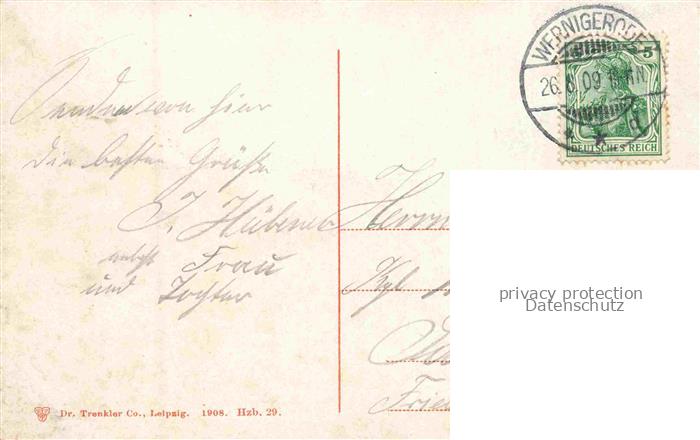 Senden von hier
die besten Grüße
J. Hübner
nebst Frau
und Tochter
Herrn
Kgl
Frie
WERNIGERODE
26. 6. 09
5
DEUTSCHES REICH
privacy protection
Datenschutz
Dr. Trenkler Co., Leipzig. 1908. Hzb. 29.